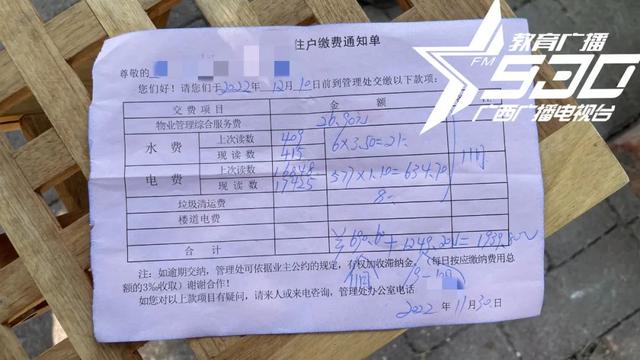 教育广播
FM
930
广西广播电视台
住户缴费通知单
尊敬的
您们好！请您们于2022年12月10日前到管理处交缴以下款项：
交费项目 金额
物业管理综合服务费 26.90元
水费 上次读数 409 6×3.50=21元
现读数 415
电费 上次读数 16848 577×1.10=634.70
现读数 17425
11月
垃圾清运费 8
楼道电费
合计 ¥690.60+1249.20=1939.80元
注：如逾期交纳，管理处可依据业主公约的规定，有权加收滞纳金，（每日按应缴纳费用总
额的3‰收取）谢谢合作！ 11月 9-10月
如您对以上款项有疑问，请来人或来电咨询，管理处办公室电话
2022年11月30日